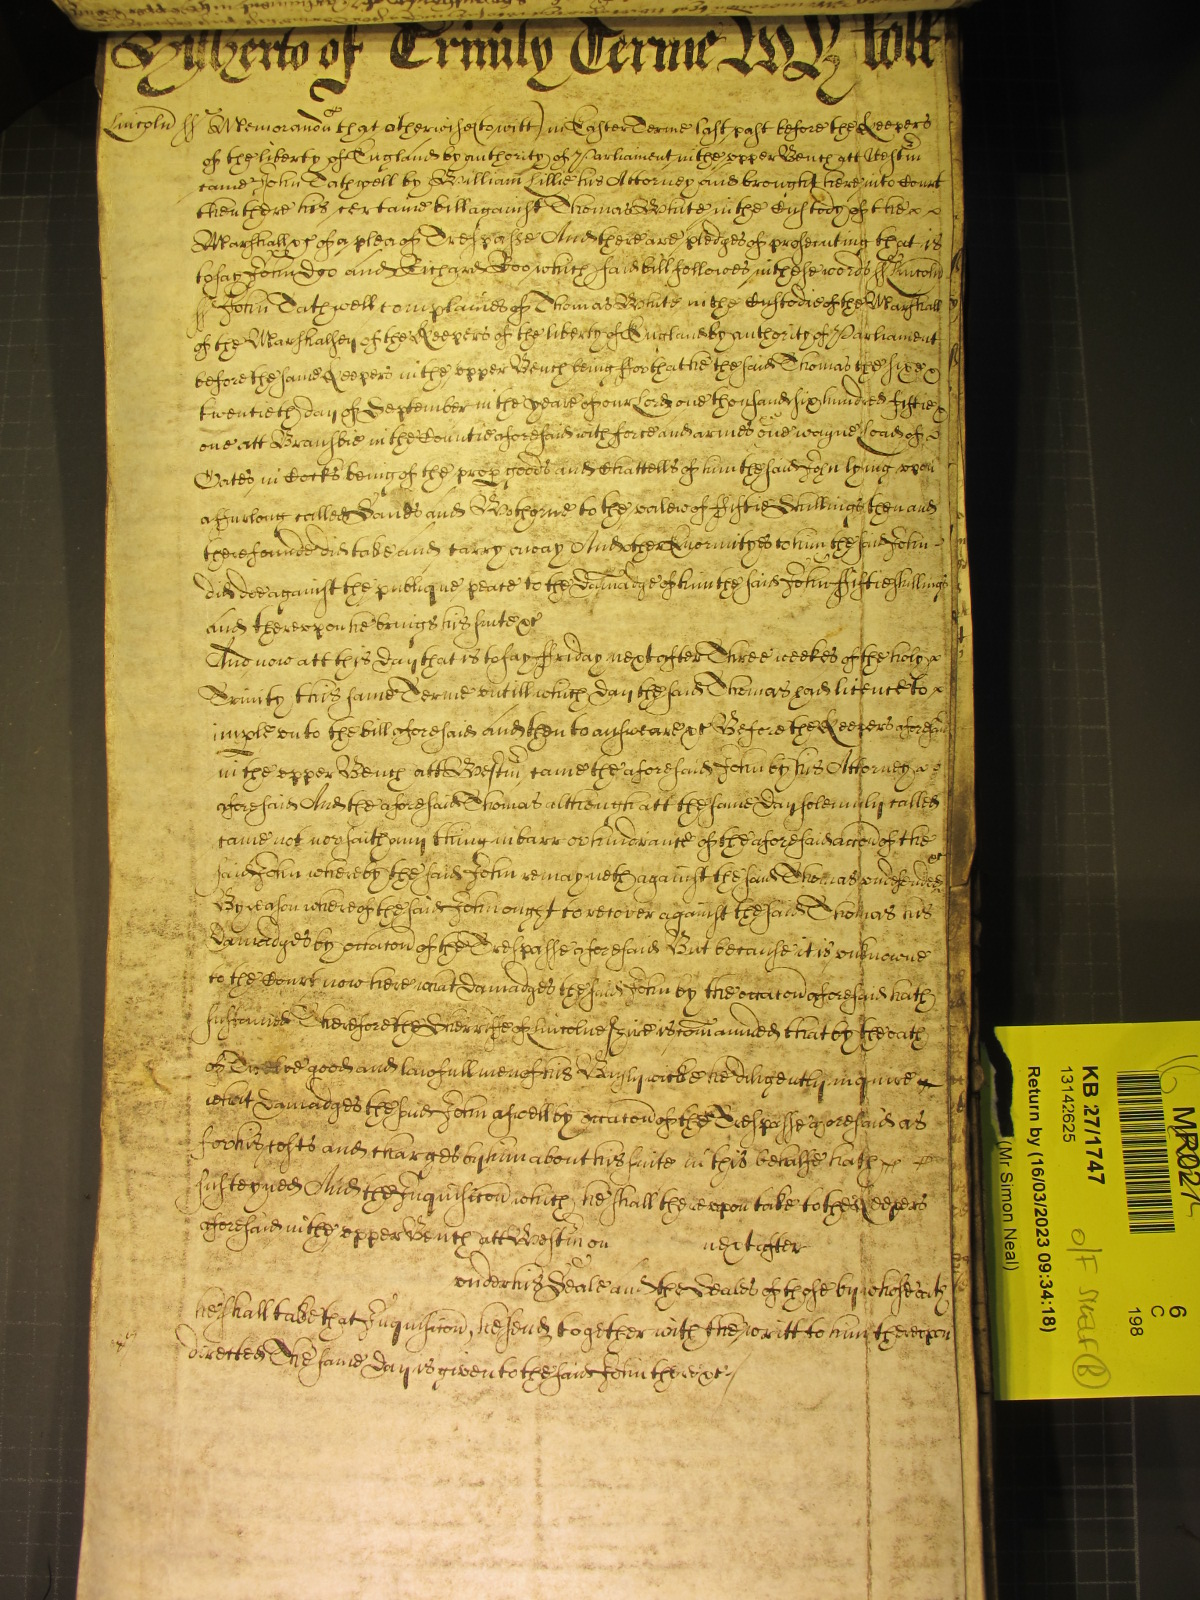 Hitherto of Trinity Terme
Lincoln ss Memorandu that otherwise (to witt) in Easter Terme last past before the Keepers
of the liberty of England by authority of Parliament in the upper Bench att Westm
came John Tathwell by William Lillie his Attorney and brought here into Court
then there his certaine bill against Thomas White in the Custody of the
Marshall &c of a plea of Trespasse And there are pledges of prosecuting that is
to say John Doo and Richard Roo which said bill followes in these words ss Lincoln
ss John Tathwell complaines of Thomas White in the Custodie of the Marshall
of the Marshalsey of the Keepers of the liberty of England by authority of Parliament
before the same Keepers in the upper Bench being ffor that he the said Thomas the sixe
twentieth day of September in the yeare of our Lord one thousand six hundred fiftie
one att Bransbie in the Countie aforesaid with force and armes one wayne Load of
Oates in Cocks being of the prop goods and Chattells of him the said John lying upon
a ffurlong called Sands and to the valew of ffiftie Shillings then and
there founde did take and carry away And other Enormityes to him the said John
did doe against the publique peace to the Damadge of him the said John ffiftie shillings
and thereupon he brings his suite &c
And now att this Day that is to say ffriday next after Three weekes of the holy
Trinity this same Terme untill which Day the said Thomas had licence to
imple unto the bill aforesaid and then to answeare &c Before the Keepers aforesaid
in the upper Bench att Westm came the aforesaid John by his Attorney
aforesaid And the aforesaid Thomas although att the same Day solemnly called
came not nor saith any thing in barr or hindrance of the aforesaid accon of the
said John whereby the said John remayneth against the said Thomas undefended &c
By reason whereof the said John ought to recover against the said Thomas his
Damadges by occacon of the Trespasse aforesaid But because it is unknowne
to the Court now here what Damadges the said John by the occacon aforesaid hath
susteyned Therefore the Sherriffe of Lincolneshire is comanded that by the oath
of Twelve good and lawfull men of his Baylywicke he diligently inquire
what Damadges the said John aswell by occacon of the Trespasse aforesaid as
for his costs and charges by him about his suite in this behalfe hath
susteyned And the Inquisicon which he shall thereupon take to the Keepers
aforesaid in the upper Bench att Westm on next after
under his Seale and the Seales of those by whose oath
he shall take that Inquisicon, he send together with the writt to him thereupon
directed The same day is given to the said John there &c
MR027
6
C
198
KB 27/1747
13142625
O/F
Return by (16/03/2023 09:34:18)
(Mr Simon Neal)